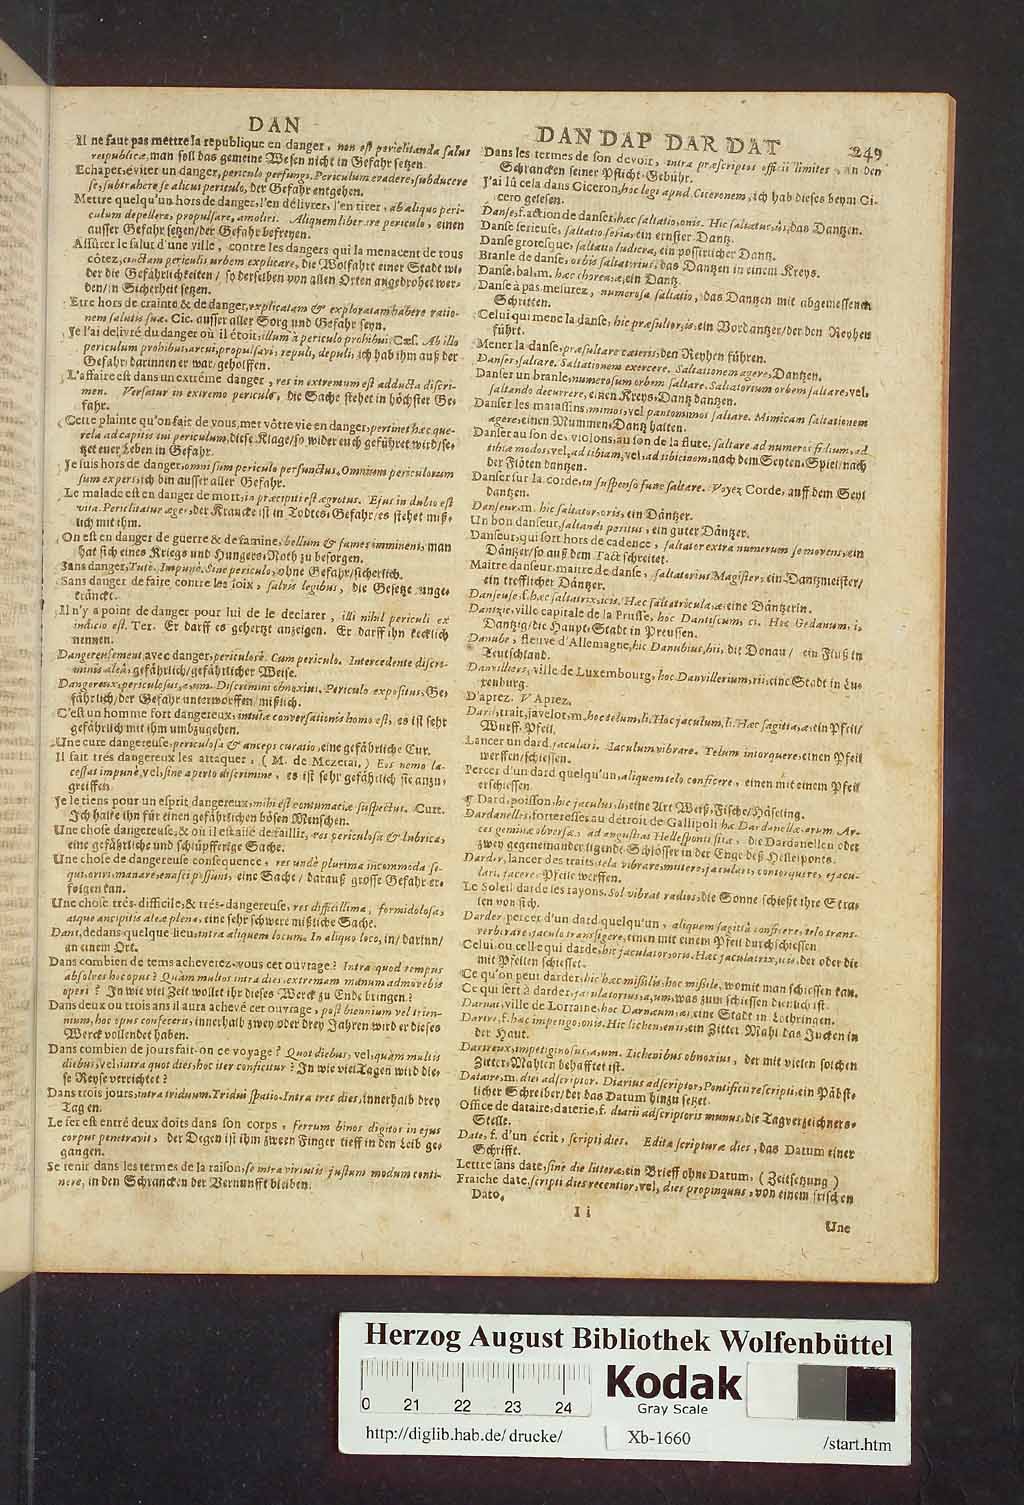 DAN
Il ne faut pas mettre la republique en danger, non est periclitanda salus
reipublicæ, man soll das gemeine Wesen nicht in Gefahr setzen.
Echaper, éviter un danger, periculo perfungi. Periculum evadere, subducere
se, subtrahere se alicui periculo, der Gefahr entgehen.
Mettre quelqu'un hors de danger, l'en délivrer, l'en tirer, ab aliquo peri-
culum depellere, propulsare, amoliri. Aliquem liberare periculo, einen
ausser Gefahr setzen/der Gefahr befreyen.
Assûrer le salut d'une ville, contre les dangers qui la menacent de tous
côtez, cunctam periculis urbem explicare, die Wolfahrt einer Stadt wi-
der die Gefährlichkeiten / so derselben von allen Orten angedrohet wer-
den/in Sicherheit setzen.
Etre hors de crainte & de danger, explicatam & exploratam habere ratio-
nem salutis suæ. Cic. ausser aller Sorg und Gefahr seyn.
Je l'ai delivré du danger où il étoit, illum à periculo prohibui. Cæs. Ab illo
periculum prohibui, arcui, propulsavi, repuli, depuli, ich hab ihm auß der
Gefahr darinnen er war/geholffen.
L'affaire est dans un extréme danger, res in extremum est adducta discri-
men. Versatur in extremo periculo, die Sache stehet in höchster Ge-
fahr.
Cette plainte qu'on fait de vous, met vôtre vie en danger, pertinet hæc que-
rela ad capitis tui periculum, diese Klage/so wider euch geführet wird/se-
tzet euer Leben in Gefahr.
Je suis hors de danger, omni sum periculo perfunctus. Omnium periculorum
sum expers, ich bin ausser aller Gefahr.
Le malade est en danger de mort, in præcipiti est ægrotus. Ejus in dubio est
vita. Periclitatur æger, der Krancke ist in Todtes-Gefahr/es stehet miß-
lich mit ihm.
On est en danger de guerre & de famine, bellum & fames imminent, man
hat sich eines Kriegs und Hungers-Noth zu besorgen.
Sans danger, Tutò. Impunè. Sine periculo, ohne Gefahr/sicherlich.
Sans danger de faire contre les loix, salvis legibus, die Gesetze unge-
kränckt.
Il n'y a point de danger pour lui de le declarer, illi nihil periculi ex
indicio est. Ter. Er darff es gehertzt anzeigen. Er darff ihn kecklich
nennen.
Dangereusement, avec danger, periculosè. Cum periculo. Intercedente discri-
minis aleâ, gefährlich/gefährlicher Weise.
Dangereux, periculosus, a, um. Discrimini obnoxius. Periculo expositus, Ge-
fährlich/der Gefahr unterworffen/mißlich.
C'est un homme fort dangereux, intutæ conversationis homo est, es ist sehr
gefährlich mit ihm umbzugehen.
Une cure dangereuse, periculosa & anceps curatio, eine gefährliche Cur.
Il fait trés dangereux les attaquer, (M. de Mezerai.) Eos nemo la-
cessat impunè, vel, sine aperto discrimine, es ist sehr gefährlich sie anzu-
greiffen
Je le tiens pour un esprit dangereux, mihi est contumaciæ suspectus. Curt.
Ich halte ihn für einen gefährlichen bösen Menschen.
Une chose dangereuse, & où il est aisé de faillir, res periculosa & lubrica,
eine gefährliche und schlüpfferige Sache.
Une chose de dangereuse consequence, res undè plurima incommoda se-
qui, oriri, manare, enasci possunt, eine Sache / darauß grosse Gefahr er-
folgen kan.
Une chose trés-difficile, & trés-dangereuse, res difficillima, formidolosa,
atque ancipitis aleæ plena, eine sehr schwere mißliche Sache.
Dans, dedans quelque lieu, intra aliquem locum. In aliquo loco, in/ darinn/
an einem Ort.
Dans combien de tems acheverez-vous cet ouvrage? Intra quod tempus
absolves hoc opus? Quàm multos intra dies, extremam manum admovebis
operi? In wie viel Zeit wollet ihr dieses Werck zu Ende bringen?
Dans deux ou trois ans il aura achevé cet ouvrage, post biennium vel trien-
nium, hoc opus confecerit, innerhalb zwey oder drey Jahren wird er dieses
Werck vollendet haben.
Dans combien de jours fait-on ce voyage? Quot diebus, vel, quàm multis
diebus, vel, intra quot dies, hoc iter conficitur? In wie viel Tagen wird die-
se Reyse verrichtet?
Dans trois jours, intra triduum. Tridui spatio. Intra tres dies, innerhalb drey
Tagen.
Le fer est entré deux doits dans son corps, ferrum binos digitos in ejus
corpus penetravit, der Degen ist ihm zween Finger tieff in den Leib ge-
gangen.
Se tenir dans les termes de la raison, se intra virtutis justum modum conti-
nere, in den Schrancken der Vernunfft bleiben.
DAN DAP DAR DAT 249
Dans les termes de son devoir, intra præscriptos officii limites, in den
Schrancken seiner Pflicht-Gebühr.
J'ai lû cela dans Ciceron, hoc legi apud Ciceronem, ich hab dieses beym Ci-
cero gelesen.
Danse, f. action de danser, hæc saltatio, onis. Hic saltatus, ûs, das Dantzen.
Danse serieuse, saltatio seria, ein ernster Dantz.
Danse grotesque, saltatio ludicra, ein possirlicher Dantz.
Branle de danse, orbis saltatorius, das Dantzen in einem Kreys.
Danse, bal, m. hæc chorea, æ, ein Dantz.
Danse à pas mesurez, numerosa saltatio, das Dantzen mit abgemessenen
Schritten.
Celui qui mene la danse, hic præsultor, is, ein Vordantzer/der den Reyhen
führt.
Mener la danse, præsultare cæteris, den Reyhen führen.
Danser, saltare. Saltationem exercere. Saltationem agere, Dantzen.
Danser un branle, numerosum orbem saltare. Saltatorium orbem saltare, vel,
saltando decurrere, einen Kreys-Dantz dantzen.
Danser les matassins, mimos, vel pantomimos saltare. Mimicam saltationem
agere, einen Mummen-Dantz halten.
Danser au son des violons, au son de la flute, saltare ad numeros fidium, ad
tibiæ modos, vel, ad tibiam, vel, ad tibicinem, nach dem Seyten-Spiel/nach
der Flöten dantzen.
Danser sur la corde, in suspenso fune saltare. Voyez Corde, auff dem Seyl
dantzen.
Danseur, m. hic saltator, oris, ein Däntzer.
Un bon danseur, saltandi peritus, ein guter Däntzer.
Danseur, qui sort hors de cadence, saltator extra numerum se movens, ein
Däntzer/so auß dem Tact schreitet.
Maître danseur, maître de danse, saltatorius Magister, ein Dantzmeister/
ein trefflicher Däntzer.
Danseuse, f. hæc saltatrix, icis. Hæc saltatricula, æ, eine Däntzerin.
Dantzic, ville capitale de la Prusse, hoc Dantiscum, ci. Hoc Gedanum, i,
Dantzig/die Haupt-Stadt in Preussen.
Danube, fleuve d'Allemagne, hic Danubius, bii, die Donau / ein Fluß in
Teutschland.
Danvilliers, ville de Luxembourg, hoc Danvillerium, rii, eine Stadt in Lu-
xenburg.
D'aprez. V Aprez.
Dard, trait, javelot, m. hoc telum, li. Hoc jaculum, li. Hæc sagitta, æ, ein Pfeil/
Wurff-Pfeil.
Lancer un dard, jaculari. Jaculum vibrare. Telum intorquere, einen Pfeil
werffen/schiessen.
Percer d'un dard quelqu'un, aliquem telo conficere, einen mit einem Pfeil
erschiessen.
¶ Dard, poisson, hic jaculus, li, eine Art Weiß-Fische/Häseling.
Dardanelles, forteresses au détroit de Gallipoli hæ Dardanellæ, arum. Ar-
ces geminæ obversæ, ad angustias Hellesponti sitæ, die Dardanellen oder
zwey gegeneinander ligende Schlösser in der Enge deß Hellesponts.
Darder, lancer des traits, tela vibrare, mittere, jaculari, contorquere, ejacu-
lari, jacere, Pfeile werffen.
Le Soleil darde les rayons, Sol vibrat radios, die Sonne schießt ihre Stra-
len von sich.
Darder, percer d'un dard quelqu'un, aliquem sagittâ configere, telo trans-
verberare, jaculo transfigere, einen mit einem Pfeil durchschiessen.
Celui ou celle qui darde, hic jaculator, oris. Hæc jaculatrix, icis, der oder die
mit Pfeilen schiesset.
Ce qu'on peut darder, hic hæc missilis, hoc missile, womit man schiessen kan.
Ce qui sert à darder, jaculatorius, a, um, was zum schiessen dienlich ist.
Darnai, ville de Lorraine, hoc Darnæum, æi, eine Stadt in Lothringen.
Dartre, f. hæc impetigo, onis. Hic lichen, enis, ein Zitter-Mahl das Jucken in
der Haut.
Dartreux, impetiginosus, a, um. Lichenibus obnoxius, der mit vielen solchen
Zitter-Mahlen behafftet ist.
Dataire, m. diei adscriptor. Diarius adscriptor, Pontificii rescripti, ein Päbst-
licher Schreiber/der das Datum hinzu setzet.
Office de dataire, daterie, f. diarii adscriptoris munus, die Tagverzeichners-
Stelle.
Date, f. d'un écrit, scripti dies. Editæ scripturæ dies, das Datum einer
Schrifft.
Lettre sans date, sine die litteræ, ein Brieff ohne Datum, (Zeitsetzung)
Fraiche date, scripti dies recentior, vel, dies propinquus, von einem frischen
Dato.
I i
Une
Herzog August Bibliothek Wolfenbüttel
0 21 22 23 24
Kodak
Gray Scale
http://diglib.hab.de/drucke/ Xb-1660 /start.htm